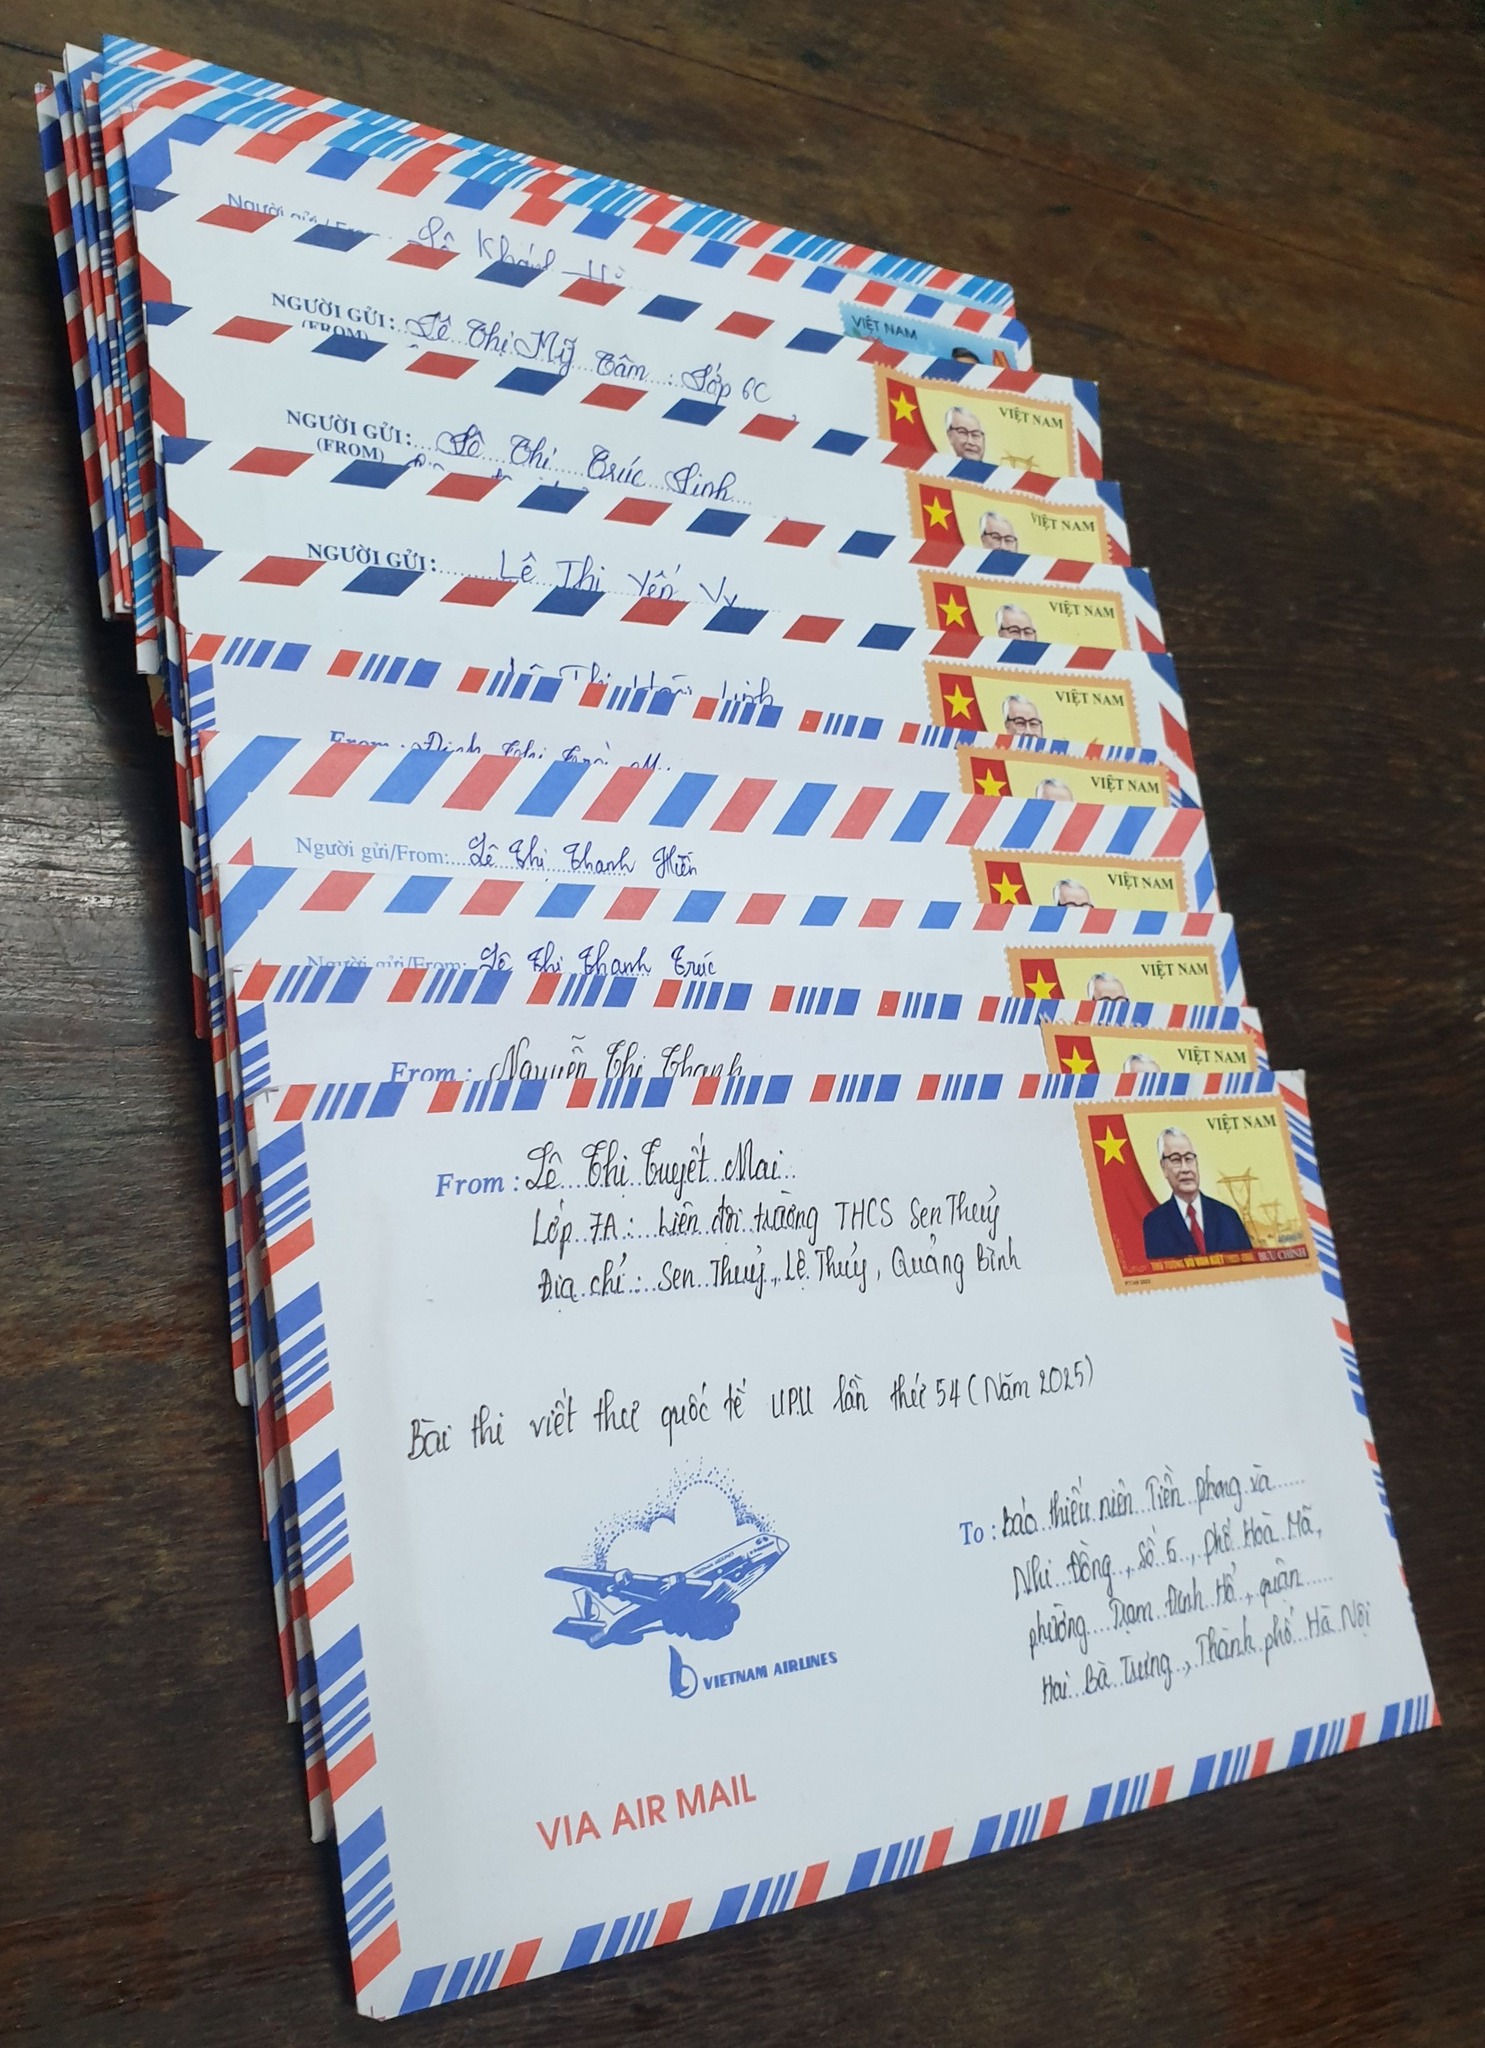 Người gửi/From: Lê Khánh
VIỆT NAM
NGƯỜI GỬI: Lê Thị Mỹ Tâm : Lớp 6C
(FROM)
VIỆT NAM
NGƯỜI GỬI: Lê Thị Trúc Linh
(FROM)
VIỆT NAM
NGƯỜI GỬI: Lê Thị Yến Vy
VIỆT NAM
Thị Linh
VIỆT NAM
From : Đinh Thị
VIỆT NAM
Người gửi/From: Lê Thị Thanh Hiền
VIỆT NAM
Người gửi/From: Lê Thị Thanh Trúc
VIỆT NAM
From : Nguyễn Thị Thanh
VIỆT NAM
From : Lê Thị Tuyết Mai
Lớp 7A : Liên đội trường THCS Sen Thuỷ
Địa chỉ : Sen Thuỷ, Lệ Thuỷ, Quảng Bình
VIỆT NAM
THỦ TƯỚNG VÕ VĂN KIỆT BƯU CHÍNH
Bài thi viết thư quốc tế UPU lần thứ 54 (Năm 2025)
To : Báo thiếu niên Tiền phong và
Nhi Đồng, số 5, phố Hoà Mã,
phường Phạm Đình Hổ, quận
Hai Bà Trưng, Thành phố Hà Nội
VIETNAM AIRLINES
VIA AIR MAIL